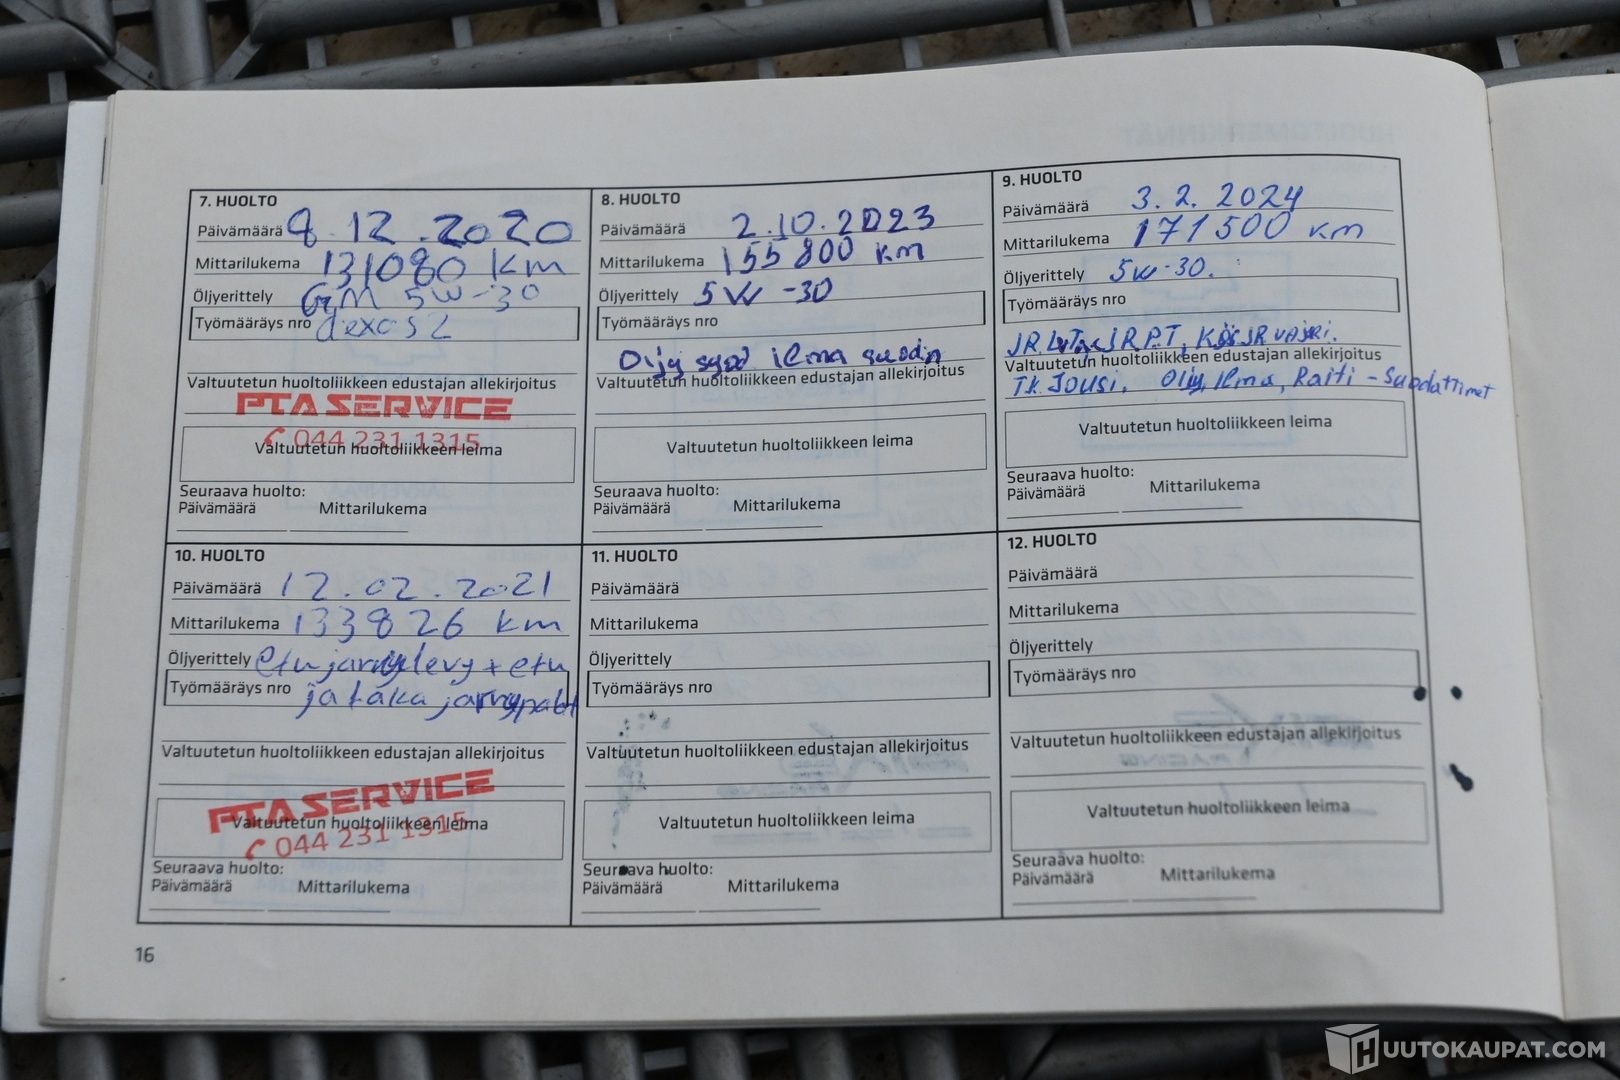 7. HUOLTO
Päivämäärä 8.12.2020
Mittarilukema 131080 km
Öljyerittely GM 5W-30
Työmääräys nro dexos2
Valtuutetun huoltoliikkeen edustajan allekirjoitus
PTA SERVICE
044 231 1315
Valtuutetun huoltoliikkeen leima
Seuraava huolto:
Päivämäärä Mittarilukema
8. HUOLTO
Päivämäärä 2.10.2023
Mittarilukema 155800 km
Öljyerittely 5W-30
Työmääräys nro
Öljy ilma suodin
Valtuutetun huoltoliikkeen edustajan allekirjoitus
Valtuutetun huoltoliikkeen leima
Seuraava huolto:
Päivämäärä Mittarilukema
9. HUOLTO
Päivämäärä 3.2.2024
Mittarilukema 171500 km
Öljyerittely 5W-30.
Työmääräys nro
JR.P.T, VAJERI.
Valtuutetun huoltoliikkeen edustajan allekirjoitus
T.K. JOUSI. Öljy, Ilma, Raiti - Suodattimet
Valtuutetun huoltoliikkeen leima
Seuraava huolto:
Päivämäärä Mittarilukema
10. HUOLTO
Päivämäärä 12.02.2021
Mittarilukema 133826 km
Öljyerittely etu jarrulevy + etu
Työmääräys nro ja taka jarrupalat
Valtuutetun huoltoliikkeen edustajan allekirjoitus
PTA SERVICE
Valtuutetun huoltoliikkeen leima
044 231 1315
Seuraava huolto:
Päivämäärä Mittarilukema
11. HUOLTO
Päivämäärä
Mittarilukema
Öljyerittely
Työmääräys nro
Valtuutetun huoltoliikkeen edustajan allekirjoitus
Valtuutetun huoltoliikkeen leima
Seuraava huolto:
Päivämäärä Mittarilukema
12. HUOLTO
Päivämäärä
Mittarilukema
Öljyerittely
Työmääräys nro
Valtuutetun huoltoliikkeen edustajan allekirjoitus
Valtuutetun huoltoliikkeen leima
Seuraava huolto:
Päivämäärä Mittarilukema
16
HUUTOKAUPAT.COM